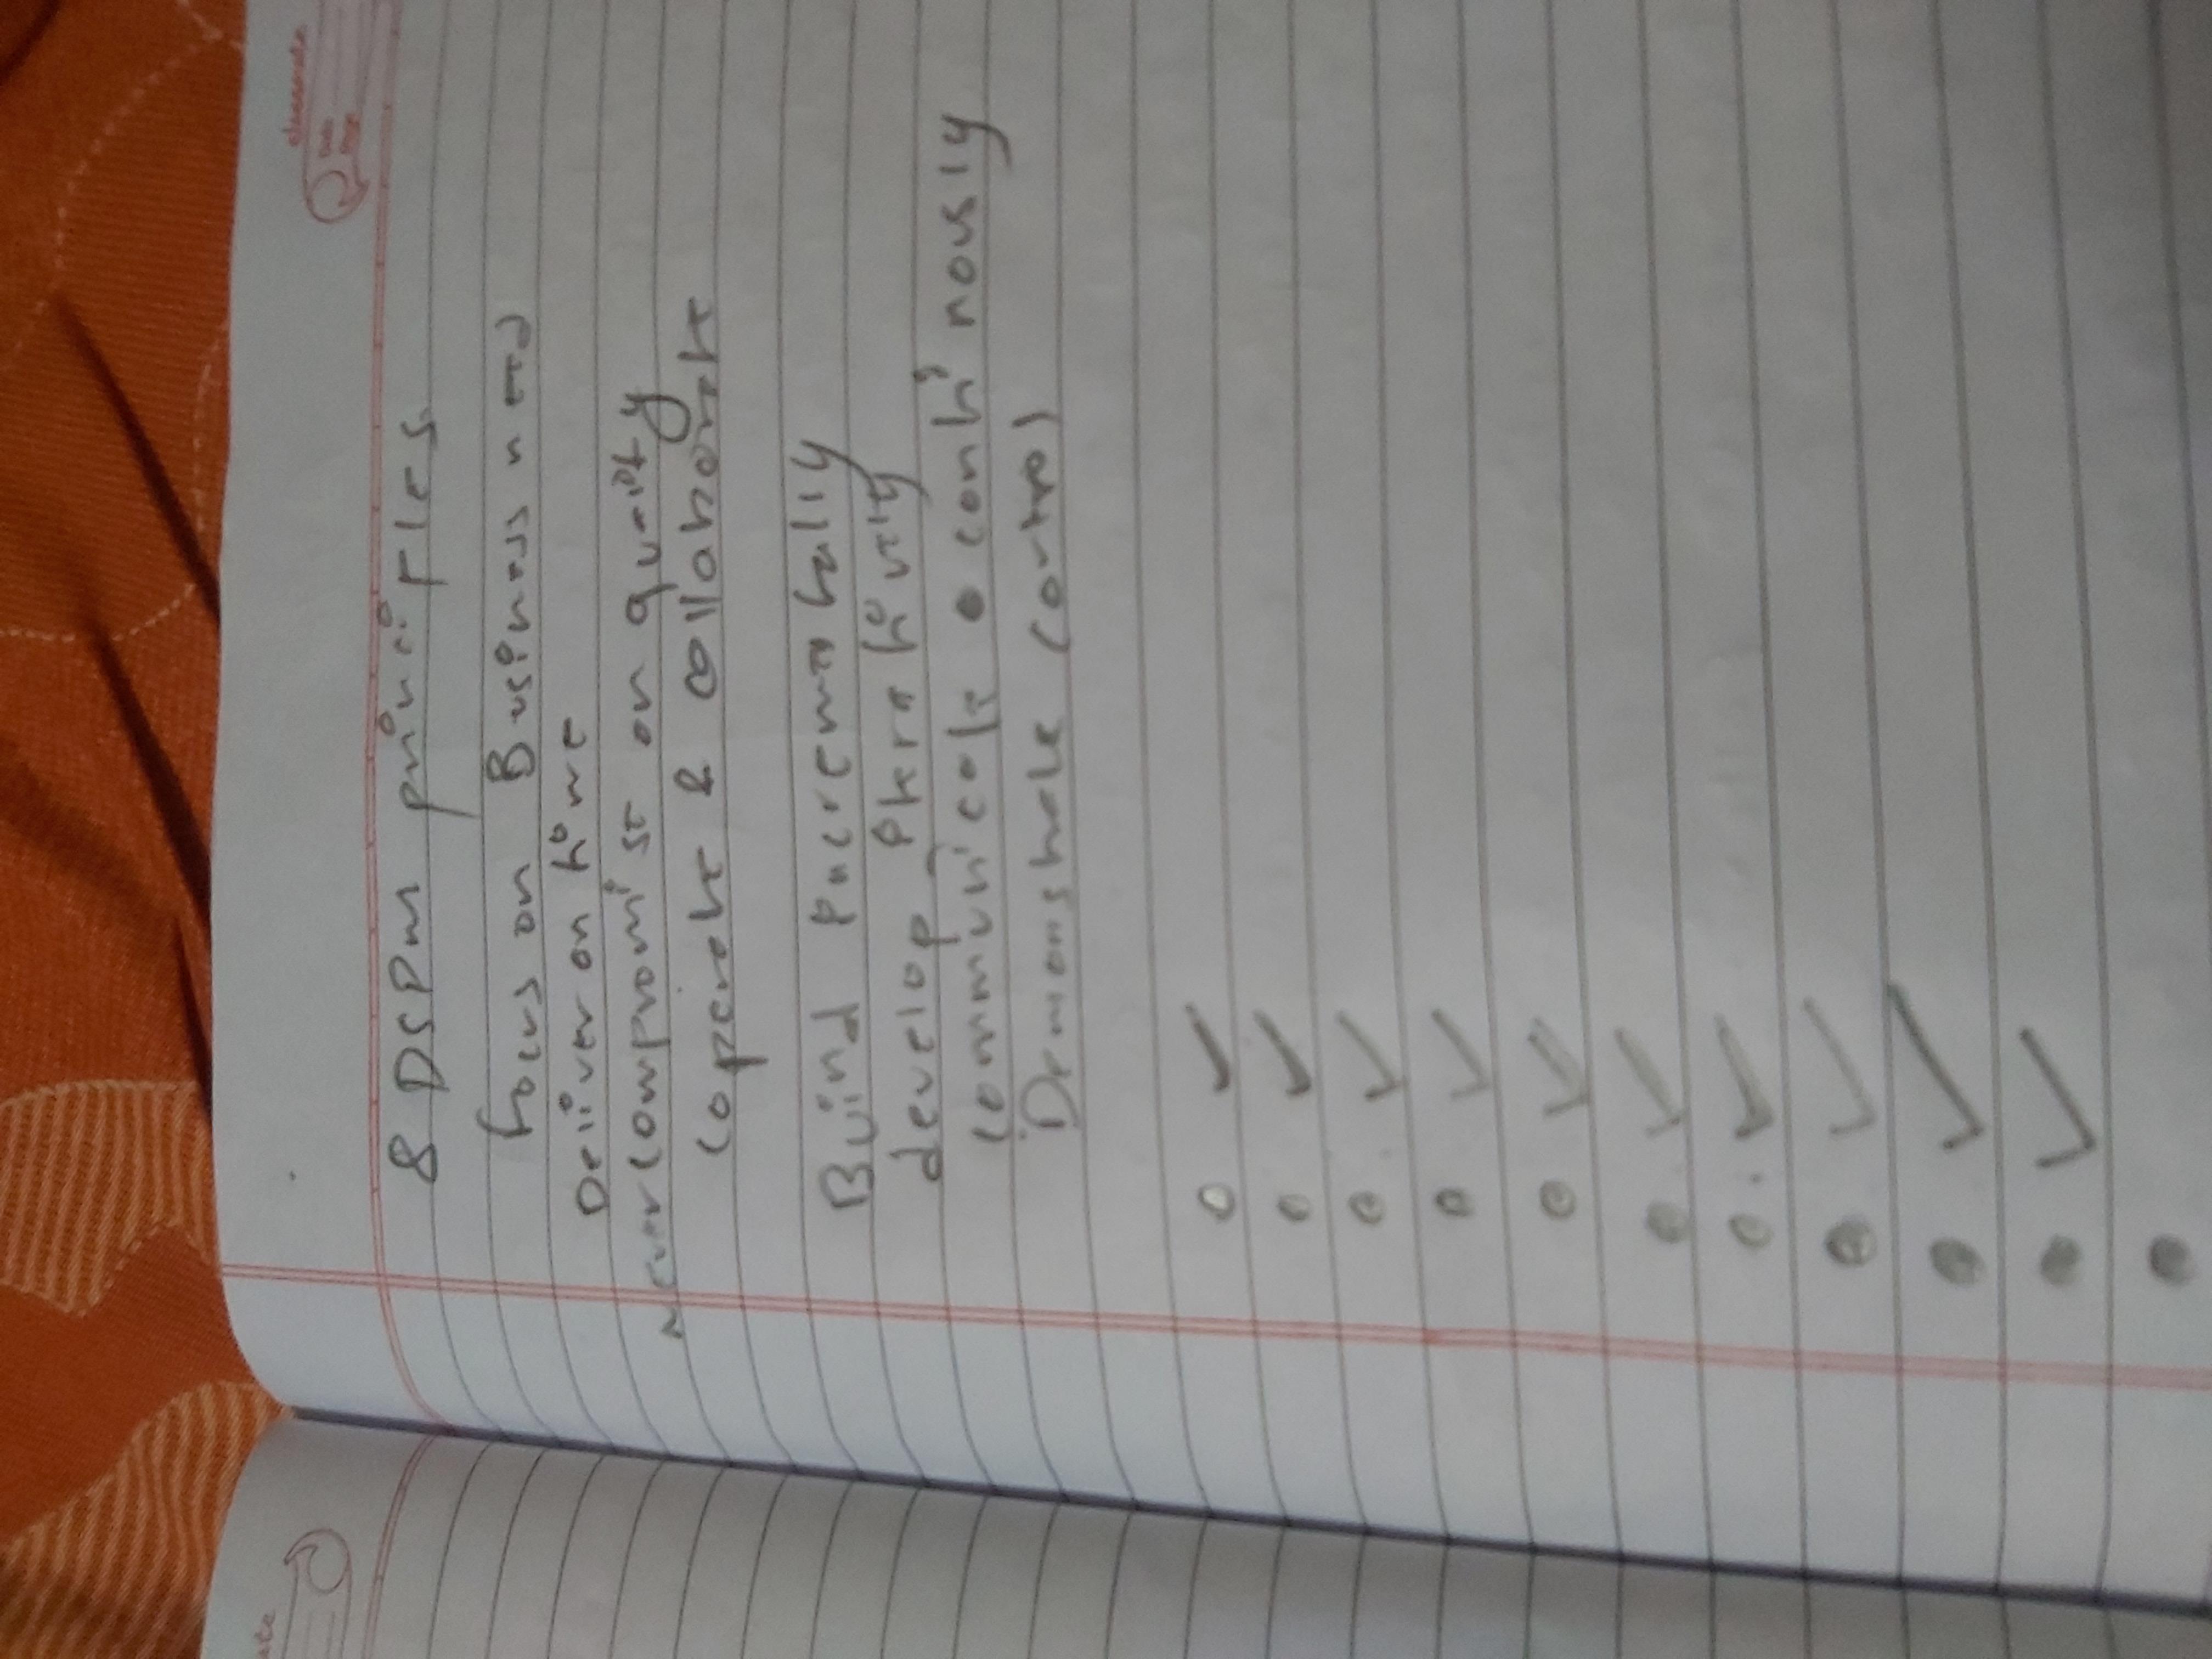 ate
classmate
Date
Page
8 DSDM principles
focus on Business need
Deliver on time
never compromise on quality
coperate & collaborate
Buind incrementally
develop iteratively
communicate continously
Demonstrate control